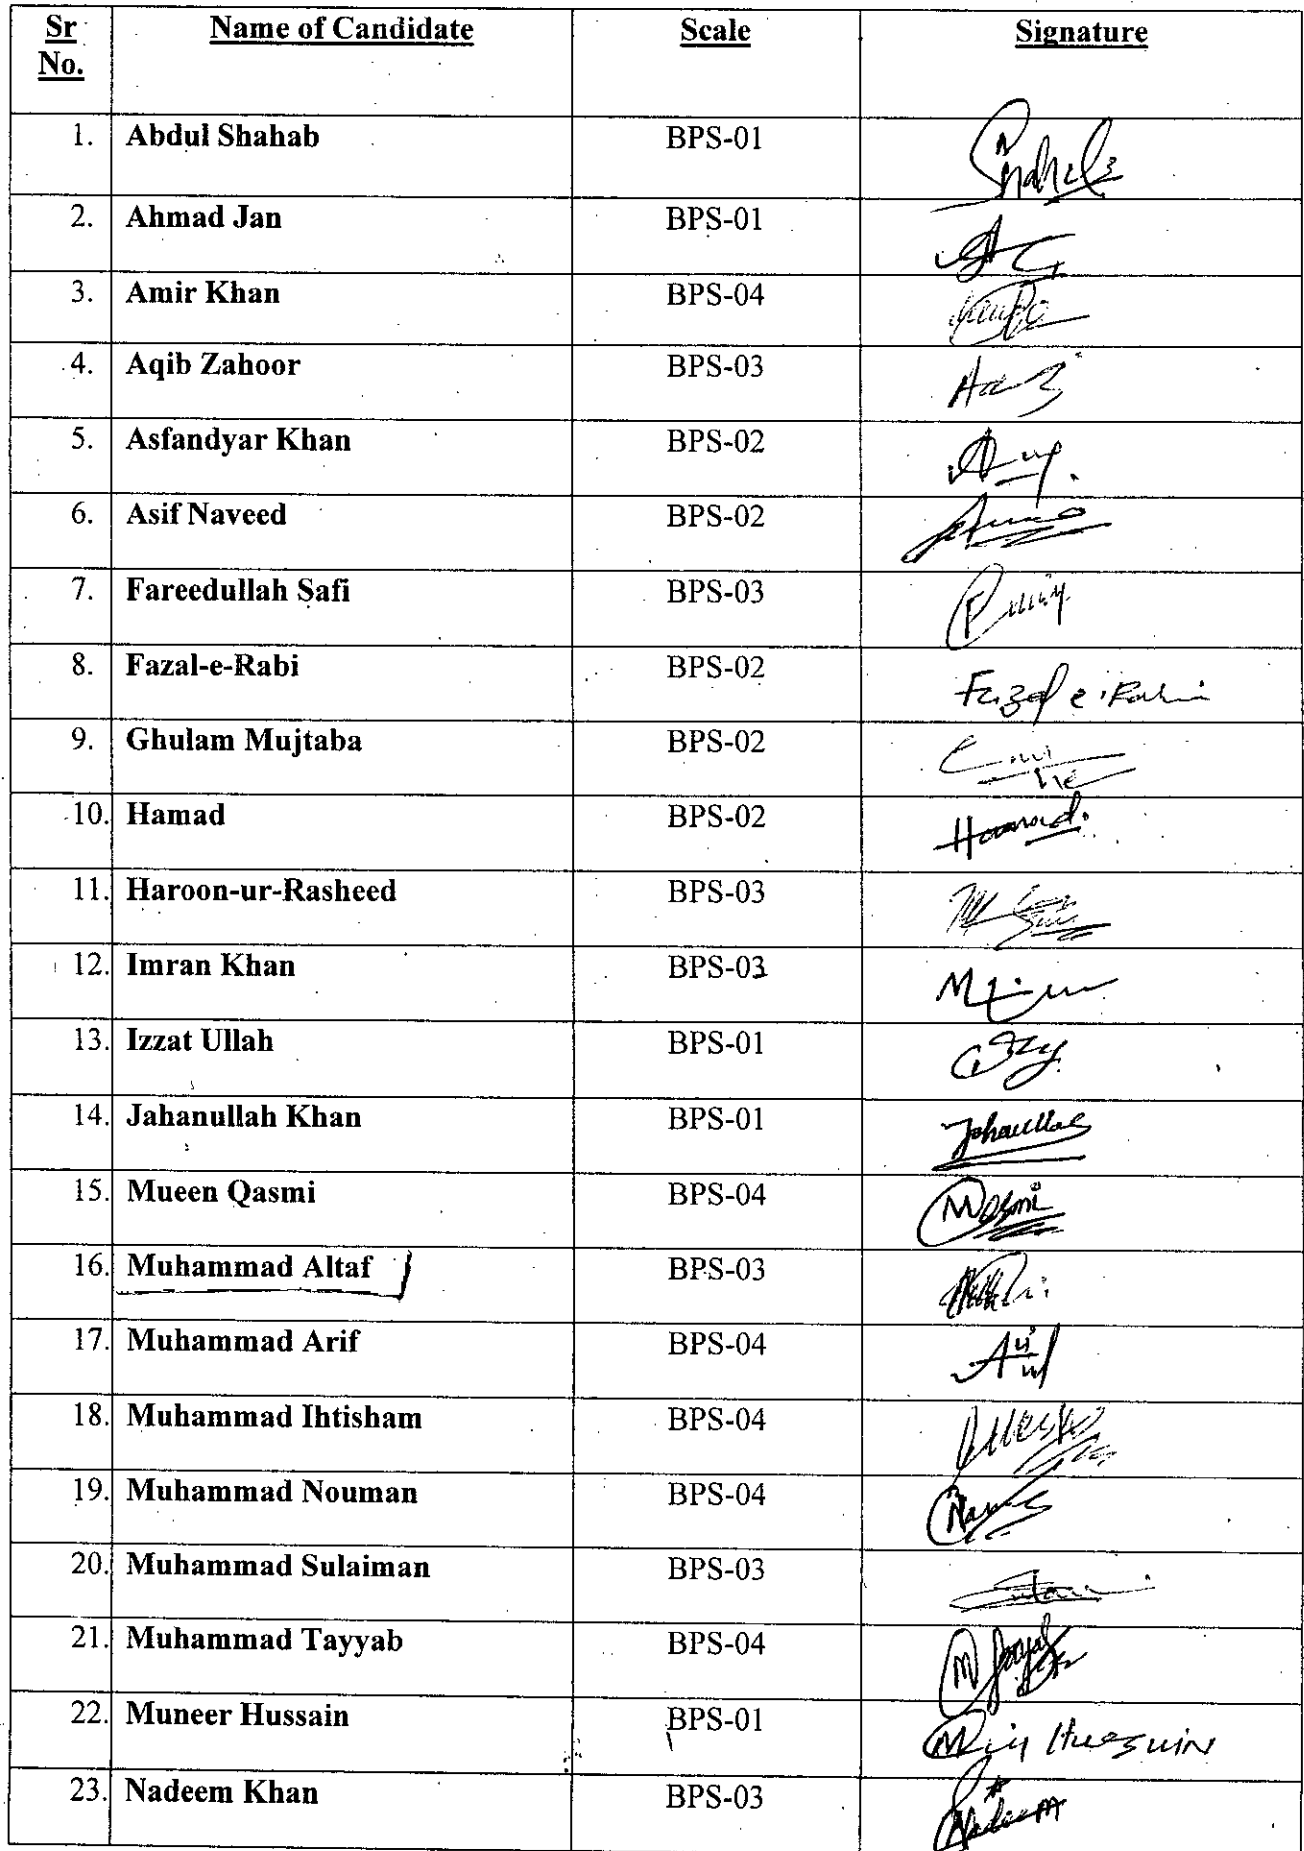 Sr No. Name of Candidate Scale Signature
1. Abdul Shahab BPS-01 Shahab
2. Ahmad Jan BPS-01
3. Amir Khan BPS-04
4. Aqib Zahoor BPS-03
5. Asfandyar Khan BPS-02
6. Asif Naveed BPS-02
7. Fareedullah Safi BPS-03
8. Fazal-e-Rabi BPS-02 Fazal e Rabi
9. Ghulam Mujtaba BPS-02
10. Hamad BPS-02 Hammad.
11. Haroon-ur-Rasheed BPS-03
12. Imran Khan BPS-03
13. Izzat Ullah BPS-01
14. Jahanullah Khan BPS-01 Jehanullah
15. Mueen Qasmi BPS-04
16. Muhammad Altaf BPS-03
17. Muhammad Arif BPS-04
18. Muhammad Ihtisham BPS-04
19. Muhammad Nouman BPS-04
20. Muhammad Sulaiman BPS-03
21. Muhammad Tayyab BPS-04
22. Muneer Hussain BPS-01 Hussain
23. Nadeem Khan BPS-03 Nadeem